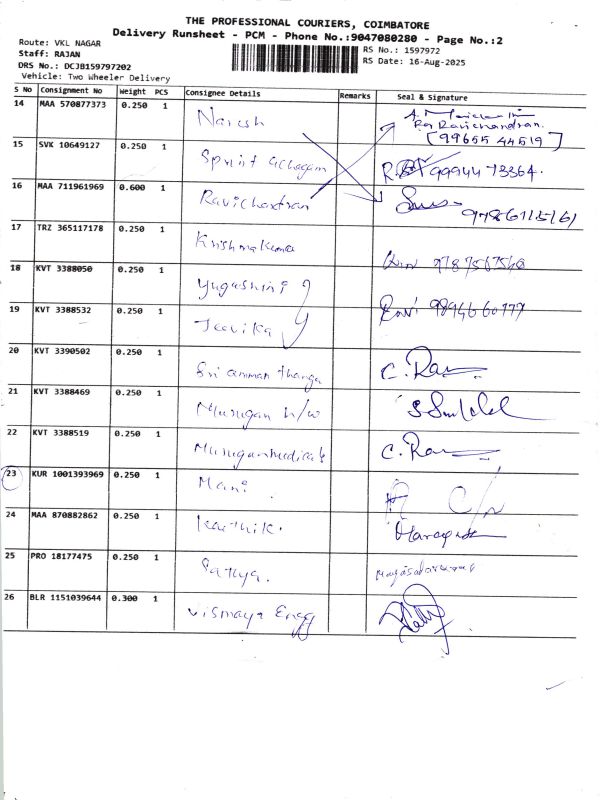 THE PROFESSIONAL COURIERS, COIMBATORE
Delivery Runsheet - PCM - Phone No.:9047080280 - Page No.:2
Route: VKL NAGAR
Staff: RAJAN
DRS No.: DCJB159797202
Vehicle: Two Wheeler Delivery
RS No.: 1597972
RS Date: 16-Aug-2025
S No Consignment No Weight PCS Consignee Details Remarks Seal & Signature
14 MAA 570877373 0.250 1 Naresh
Ravichandran.
[99655 44519]
15 SVK 10649127 0.250 1 Sprint 99944 73364.
16 MAA 711961969 0.600 1 Ravichandran
17 TRZ 365117178 0.250 1 Krishnakumar 9787567540
18 KVT 3388050 0.250 1 Yugashini
19 KVT 3388532 0.250 1 Jeevika Ravi 9894660777
20 KVT 3390502 0.250 1 Sri amman thanga C. Ram
21 KVT 3388469 0.250 1 Murugan h/w
22 KVT 3388519 0.250 1 Muruganmedicals C. Ram
23 KUR 1001393969 0.250 1 Mani
24 MAA 870882862 0.250 1 Karthik.
25 PRO 18177475 0.250 1 Sathya.
26 BLR 1151039644 0.300 1 Vismaya Engg